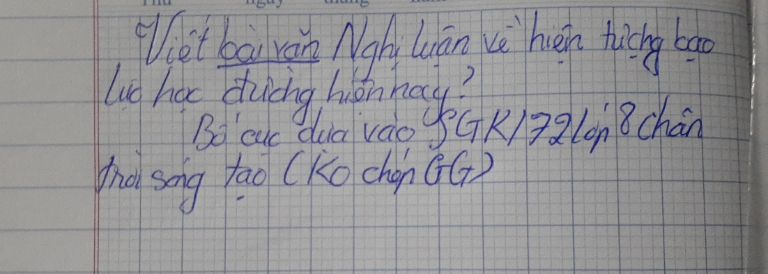 Thứ ngày tháng
Viết bài văn Nghị luận về hiện tượng bạo
lực học đường hiện nay?
Bố cục dựa vào SGK/72 lớp 8 chân
trời sáng tạo (Ko chép GG)